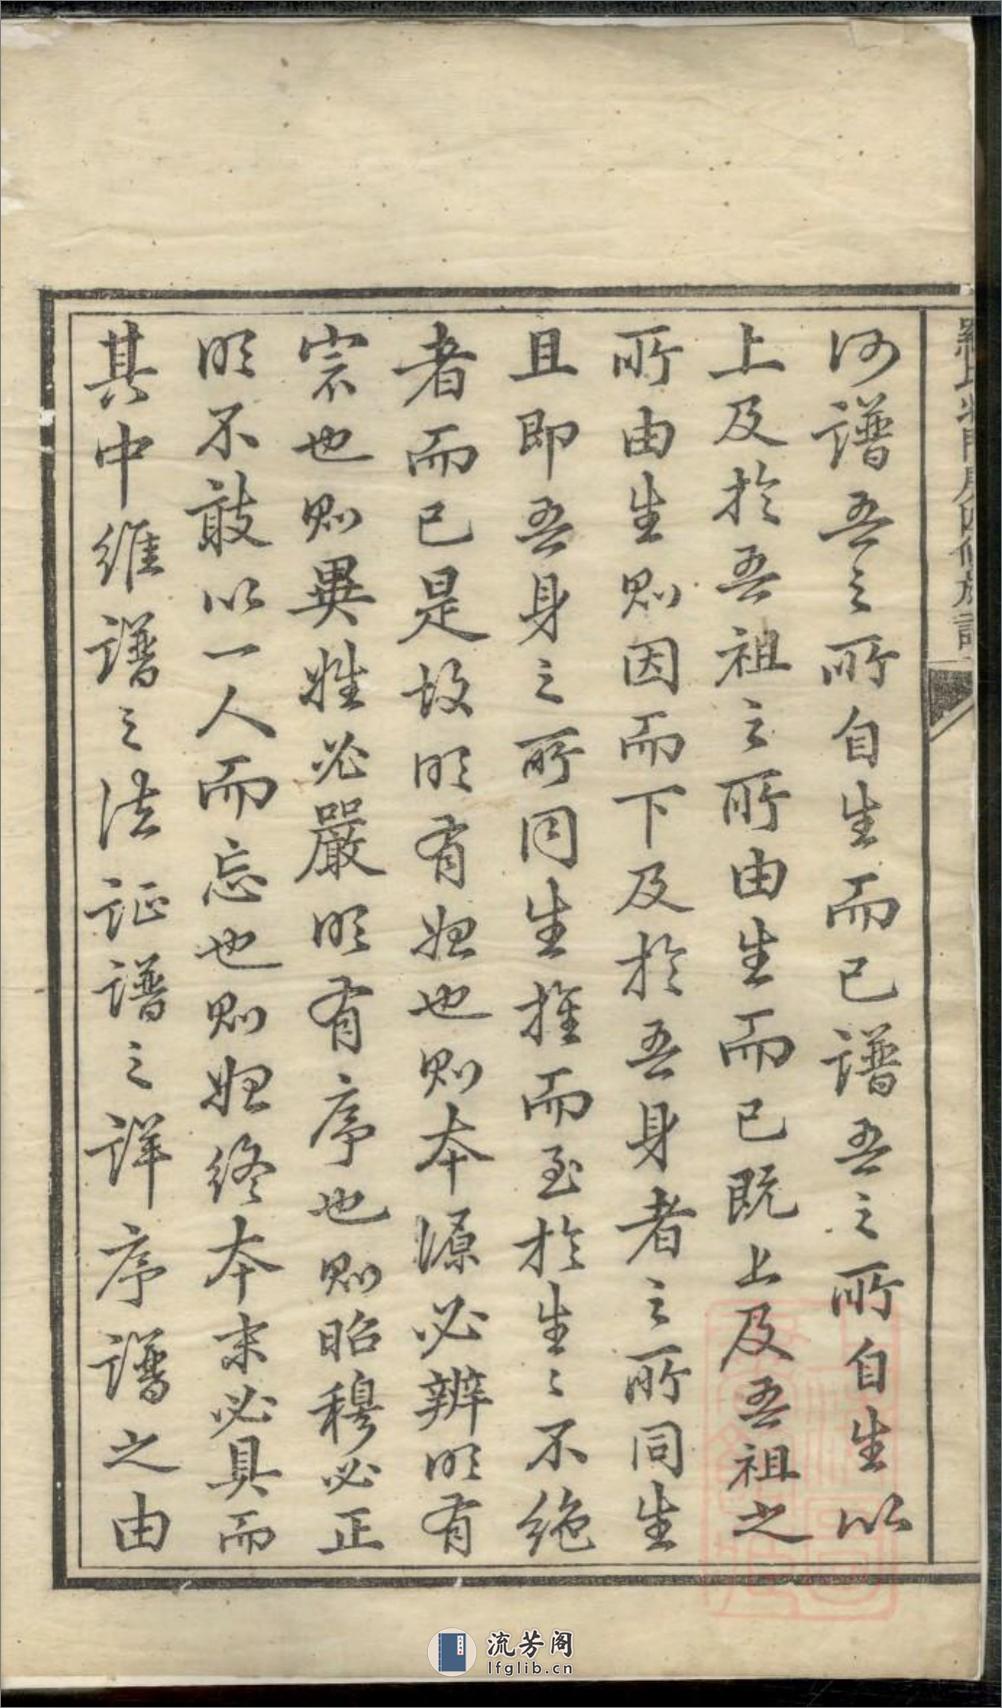 何譜吾之所自生而已譜吾之所自生以
上及於吾祖之所由生而已既上及吾祖之
所由生則因而下及於吾身者之所同生
且即吾身之所同生推而至於生生不絶
者而已是故明有始也則本源必辨明有
宗也則異姓必嚴明有序也則昭穆必正
明不敢以一人而忘也則始終本末必具而
其中維譜之法証譜之詳序譜之由
流芳阁
lfglib.cn